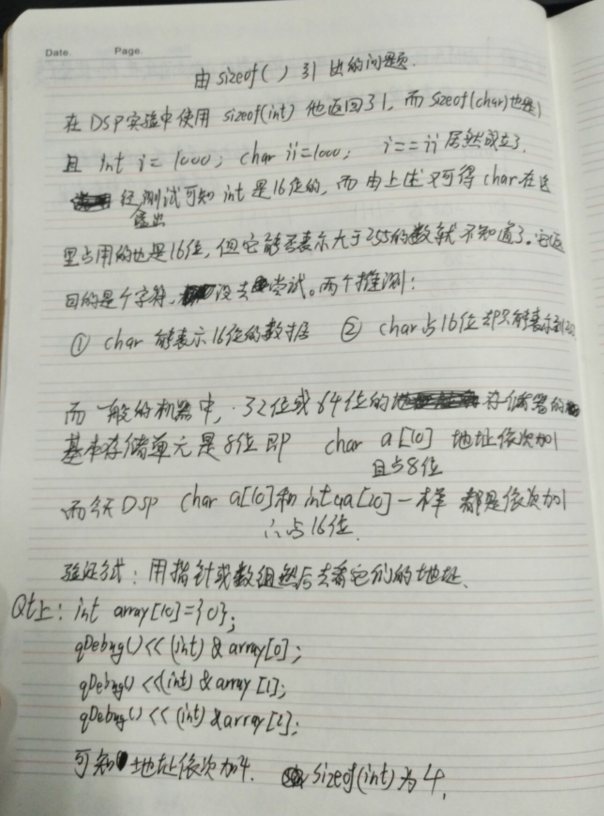 Date. Page.
由sizeof( )引出的问题.
在DSP实验中使用 sizeof(int) 他返回了1, 而sizeof(char)也是1
且 int i = 1000; char ii=1000; i==ii 居然成立了.
经测试可知 int 是16位的, 而由上述又可得char在这
里占用的也是16位, 但它能否表示大于255的数就不知道了. 它返
回的是个字符, 没去尝试。两个推测:
① char 能表示16位的数据 ② char占16位却只能表示到
而一般的机器中, 32位或64位的存储器的
基本存储单元是8位 即 char a[10] 地址依次加1
且占8位
而今天DSP char a[10]和int aa[10]一样 都是依次加1
占16位.
验证方式: 用指针或数组然后去看它们的地址.
Qt上: int array[10]={0};
qDebug()<<(int)&array[0];
qDebug()<<(int)&array[1];
qDebug()<<(int)&array[2];
可知 地址依次加4. sizeof(int)为4.